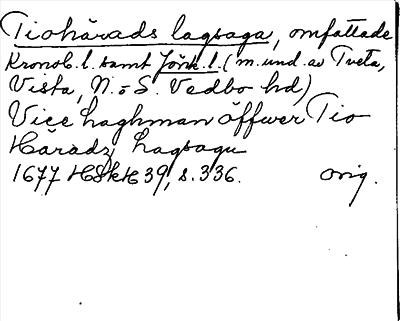 Tiohärads lagsaga, omfattade
Kronob. l. samt Jönk. l. (m. und. av Tveta,
Vista, N. o S. Vedbo hd)
Vice laghman öffwer Tio
Häradz lagsagu
1677 HSkH 39, s. 336. orig.